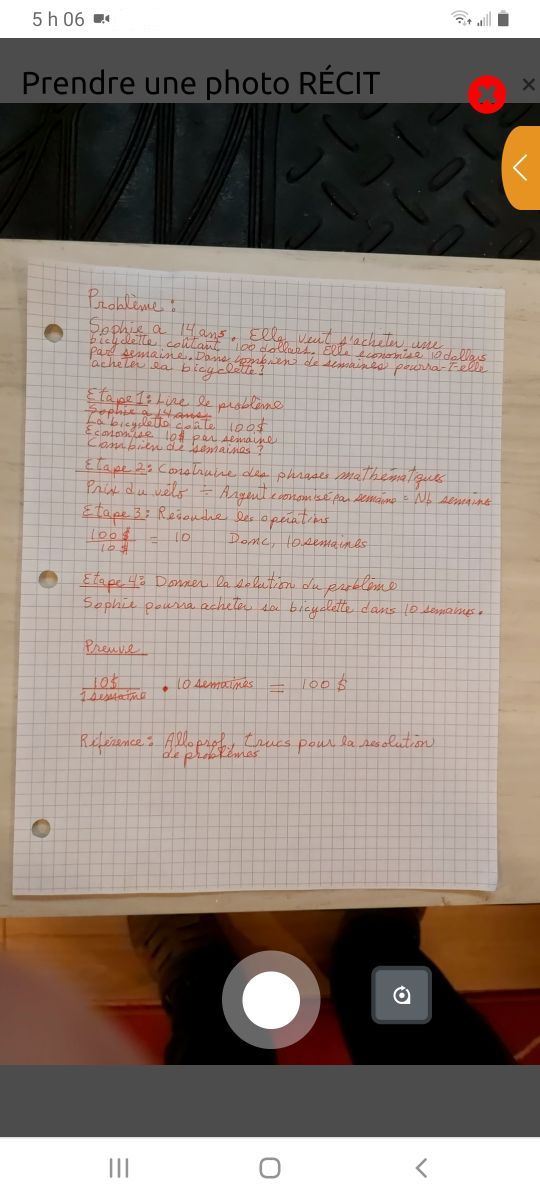 5 h 06
Prendre une photo RÉCIT
Problème :
Sophie a 14 ans. Elle veut s'acheter une
bicyclette coûtant 100 dollars. Elle économise 10 dollars
par semaine. Dans combien de semaines pourra-t-elle
acheter sa bicyclette?
Étape 1: Lire le problème
Sophie a 14 ans.
La bicyclette coûte 100$
Économise 10$ par semaine
Combien de semaines ?
Étape 2: Construire des phrases mathématiques
Prix du vélo ÷ Argent économisé par semaine = Nb semaines
Étape 3: Résoudre les opérations
100 $ / 10 $ = 10 Donc, 10 semaines
Étape 4: Donner la solution du problème
Sophie pourra acheter sa bicyclette dans 10 semaines.
Preuve
10$ / 1 semaine • 10 semaines = 100 $
Référence: Alloprof, trucs pour la resolution
de problèmes